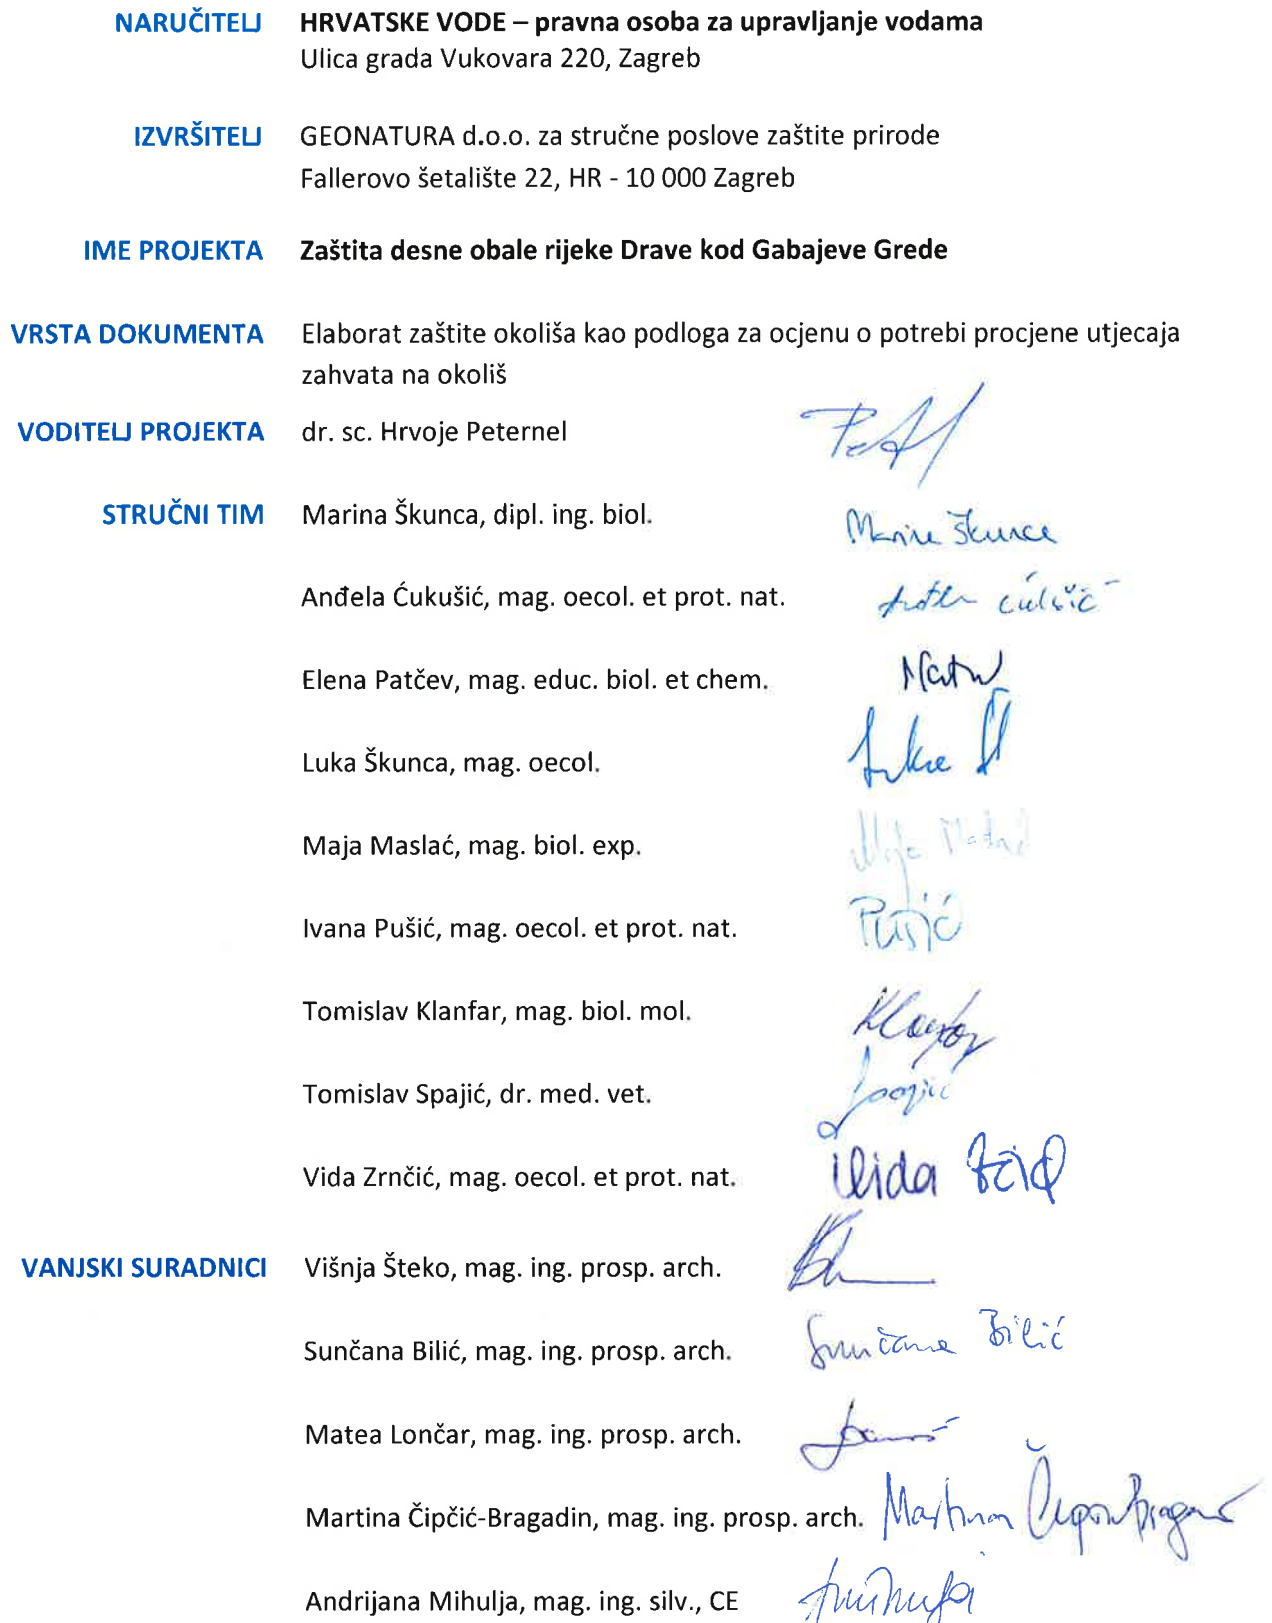 NARUČITELJ HRVATSKE VODE – pravna osoba za upravljanje vodama
Ulica grada Vukovara 220, Zagreb
IZVRŠITELJ GEONATURA d.o.o. za stručne poslove zaštite prirode
Fallerovo šetalište 22, HR - 10 000 Zagreb
IME PROJEKTA Zaštita desne obale rijeke Drave kod Gabajeve Grede
VRSTA DOKUMENTA Elaborat zaštite okoliša kao podloga za ocjenu o potrebi procjene utjecaja
zahvata na okoliš
VODITELJ PROJEKTA dr. sc. Hrvoje Peternel
STRUČNI TIM Marina Škunca, dipl. ing. biol. Marina Škunca
Anđela Ćukušić, mag. oecol. et prot. nat.
Elena Patčev, mag. educ. biol. et chem.
Luka Škunca, mag. oecol. Luka
Maja Maslać, mag. biol. exp. Maja
Ivana Pušić, mag. oecol. et prot. nat. Pušić
Tomislav Klanfar, mag. biol. mol. Klanfar
Tomislav Spajić, dr. med. vet. Spajić
Vida Zrnčić, mag. oecol. et prot. nat. Vida
VANJSKI SURADNICI Višnja Šteko, mag. ing. prosp. arch.
Sunčana Bilić, mag. ing. prosp. arch. Sunčana Bilić
Matea Lončar, mag. ing. prosp. arch.
Martina Čipčić-Bragadin, mag. ing. prosp. arch. Martina
Andrijana Mihulja, mag. ing. silv., CE